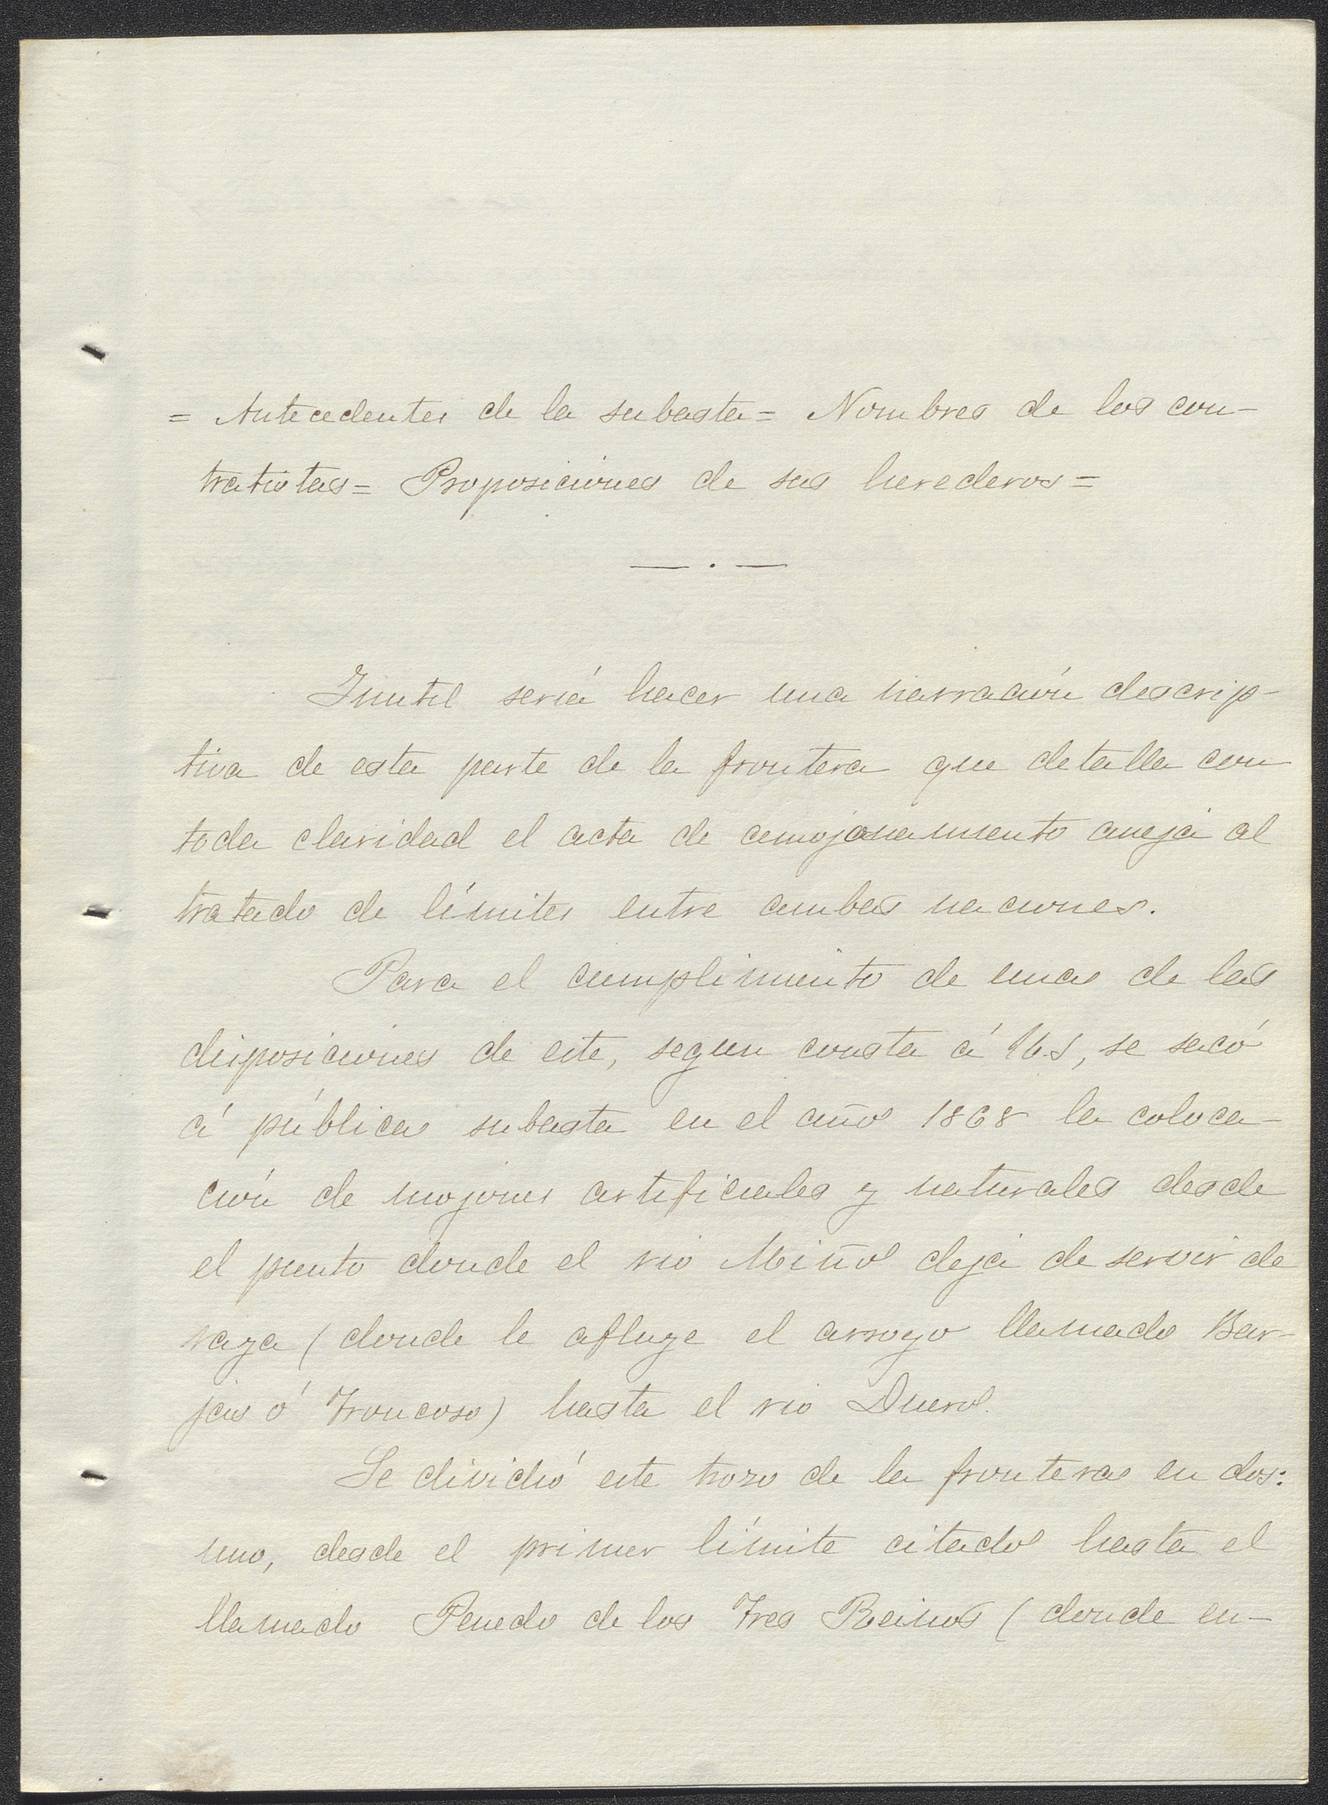 = Antecedentes de la subasta = Nombres de los con-
tratistas = Proposiciones de sus herederos =
— . —
Inutil sería hacer una narración descrip-
tiva de esta parte de la frontera que detalla con
toda claridad el acta de amojonamiento aneja al
tratado de límites entre ambas naciones.
Para el cumplimiento de una de las
disposiciones de este, segun consta á V.S, se sacó
á pública subasta en el año 1868 la coloca-
ción de mojones artificiales y naturales desde
el punto donde el rio Miño deja de servir de
raya (donde le afluye el arroyo llamado Bar-
jas ó Troncoso) hasta el rio Duero.
Se dividió este trozo de la frontera en dos:
uno, desde el primer límite citado hasta el
llamado Penedo de los Tres Reinos (donde en-